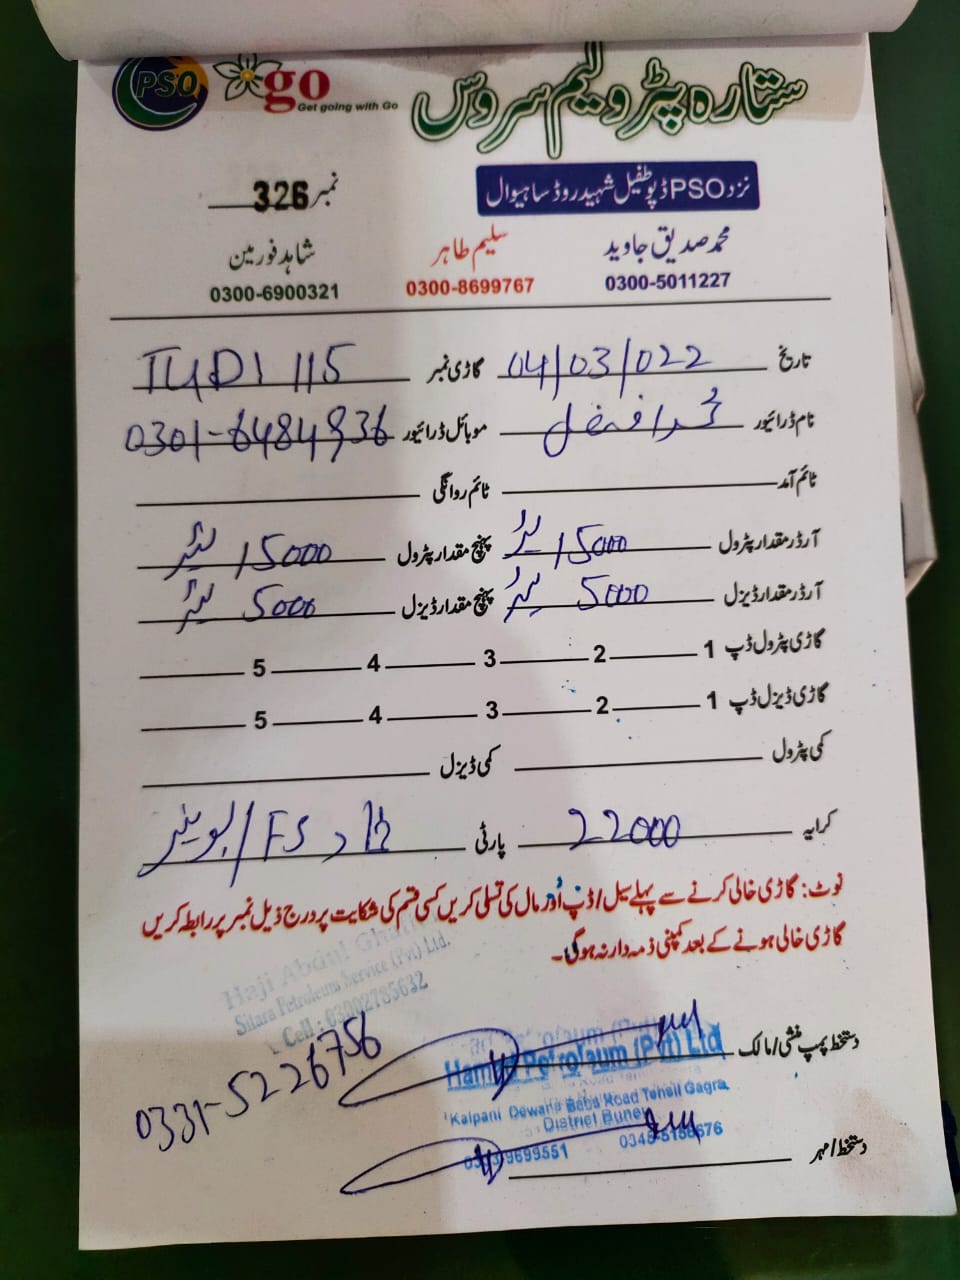 PSO go ستارہ پٹرولیم سروس
Get going with Go
نزد PSO ڈپو طفیل شہید روڈ ساہیوال
نمبر 326
محمد صدیق جاوید سلیم طاہر شاہد فورمین
0300-5011227 0300-8699767 0300-6900321
تاریخ 04/03/022 گاڑی نمبر 115
نام ڈرائیور محمد افضل موبائل ڈرائیور 0301-6484936
ٹائم آمد ٹائم روانگی
آرڈر مقدار پٹرول 15000 لیٹر پہنچ مقدار پٹرول 15000 لیٹر
آرڈر مقدار ڈیزل 5000 لیٹر پہنچ مقدار ڈیزل 5000 لیٹر
گاڑی پٹرول ڈپ 1 2 3 4 5
گاڑی ڈیزل ڈپ 1 2 3 4 5
کمی پٹرول کمی ڈیزل
کرایہ 22000 پارٹی FS / بونیر
نوٹ: گاڑی خالی کرنے سے پہلے سیل/ڈپ اور مال کی تسلی کریں کسی قسم کی شکایت پر درج ذیل نمبر پر رابطہ کریں
گاڑی خالی ہونے کے بعد کمپنی ذمہ دار نہ ہوگی۔
Haji Abdul Ghani
Sitara Petroleum Service (Pvt) Ltd.
Cell : 03002785632
0331-5226756
دستخط پمپ منشی/مالک
Petrolaum (Pvt) Ltd
Kalpani Dewana Baba Road Tehsil Gagra
District Buner
9699551
دستخط/مہر